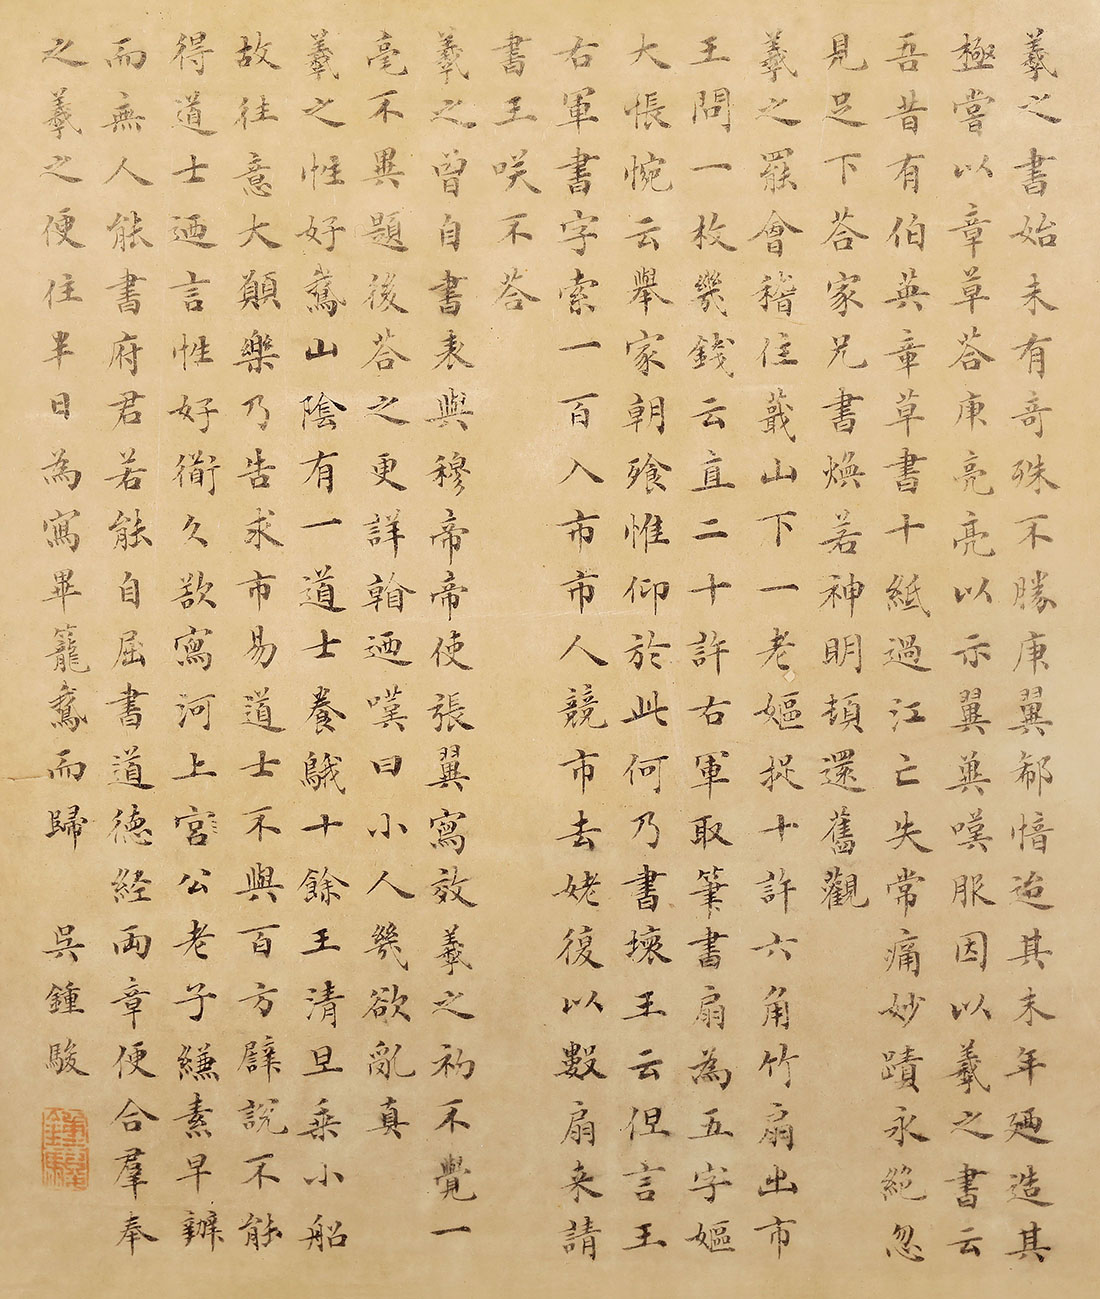 羲之書始未有奇殊不勝庾翼郗愔迨其末年廼造其
極嘗以章草荅庾亮亮以示翼翼嘆服因以羲之書云
吾昔有伯英章草書十紙過江亡失常痛妙蹟永絕忽
見足下荅家兄書煥若神明頓還舊觀
羲之罷會稽住蕺山下一老嫗捉十許六角竹扇出市
王問一枚幾錢云直二十許右軍取筆書扇為五字嫗
大悵惋云舉家朝飧惟仰於此何乃書壞王云但言王
右軍書字索一百入市市人競市去姥復以數扇来請
書王咲不荅
羲之曾自書表與穆帝帝使張翼寫效羲之初不覺一
毫不異題後荅之更詳翰迺嘆曰小人幾欲亂真
羲之性好鵞山陰有一道士養鵝十餘王清旦乗小船
故往意大願樂乃告求市易道士不與百方譬說不能
得道士迺言性好衟久欲寫河上宮公老子縑素早辦
而無人能書府君若能自屈書道德経両章便合羣奉
之羲之便住半日為寫畢籠鵞而歸 吳鍾駿